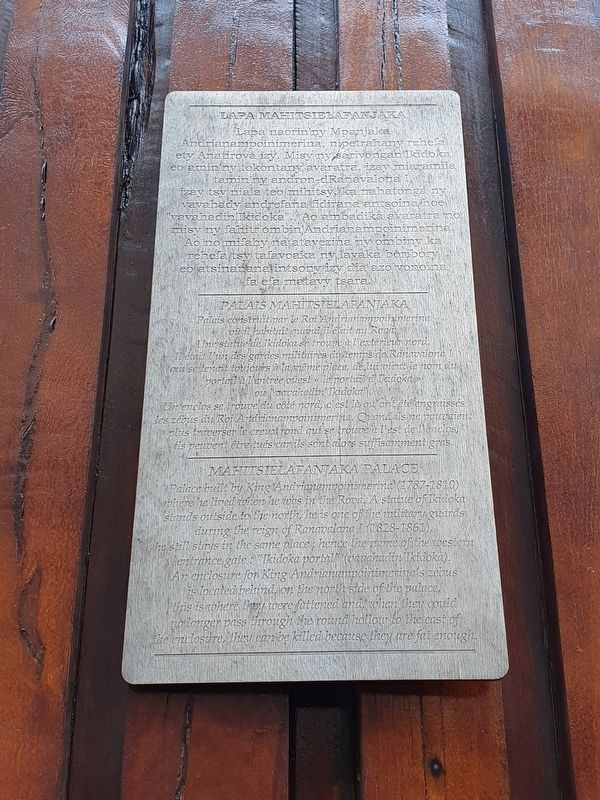 LAPA MAHITSIELAFANJAKA
Lapa naorin'ny Mpanjaka
Andrianampoinimerina, nipetrahany rehefa
ety Anatirova izy. Misy ny sarivongan'Ikidoka
eo amin'ny tokontany avaratra, izay miaramila
tamin'ny andron-dRanavalona I
izay tsy niala teo mihitsy, ka nahatonga ny
vavahady andrefana fidirana antsoina hoe
"vavahadin'Ikidoka". Ao ambadika avaratra no
misy ny fahitr'ombin'Andrianampoinimerina.
Ao no mifahy na atavezina ny ombiny ka
rehefa tsy tafavoaka ny lavaka boribory
eo atsinanana intsony izy dia azo vonoina
fa efa matavy tsara.
PALAIS MAHITSIELAFANJAKA
Palais construit par le Roi Andrianampoinimerina
où il habitait quand il était au Rova.
Une statue de Ikidoka se trouve à l'extérieur nord.
Il était l'un des gardes militaires du temps de Ranavalona I
qui se tenait toujours à la même place, de lui vient le nom du
portail à l'entrée ouest « le portail d'Ikidoka »
ou "vavahadin'Ikidoka".
Un enclos se trouve du côté nord, c'est là où ont été engraissés
les zébus du Roi Andrianampoinimerina. Quand ils ne pouvaient
plus traverser le creux rond qui se trouve à l'est de l'enclos,
ils peuvent être tués car ils sont alors suffisamment gras.
MAHITSIELAFANJAKA PALACE
Palace built by King Andrianampoinimerina (1787-1810)
where he lived when he was in the Rova. A statue of Ikidoka
stands outside to the north, he is one of the military guards
during the reign of Ranavalona I (1828-1861)
he still stays in the same place ; hence the name of the western
entrance gate : "Ikidoka portal" (vavahadin'Ikidoka).
An enclosure for King Andrianampoinimerina's zebus
is located behind, on the north side of the palace,
this is where they were fattened and, when they could
no longer pass through the round hollow to the east of
the enclosure, they can be killed because they are fat enough.